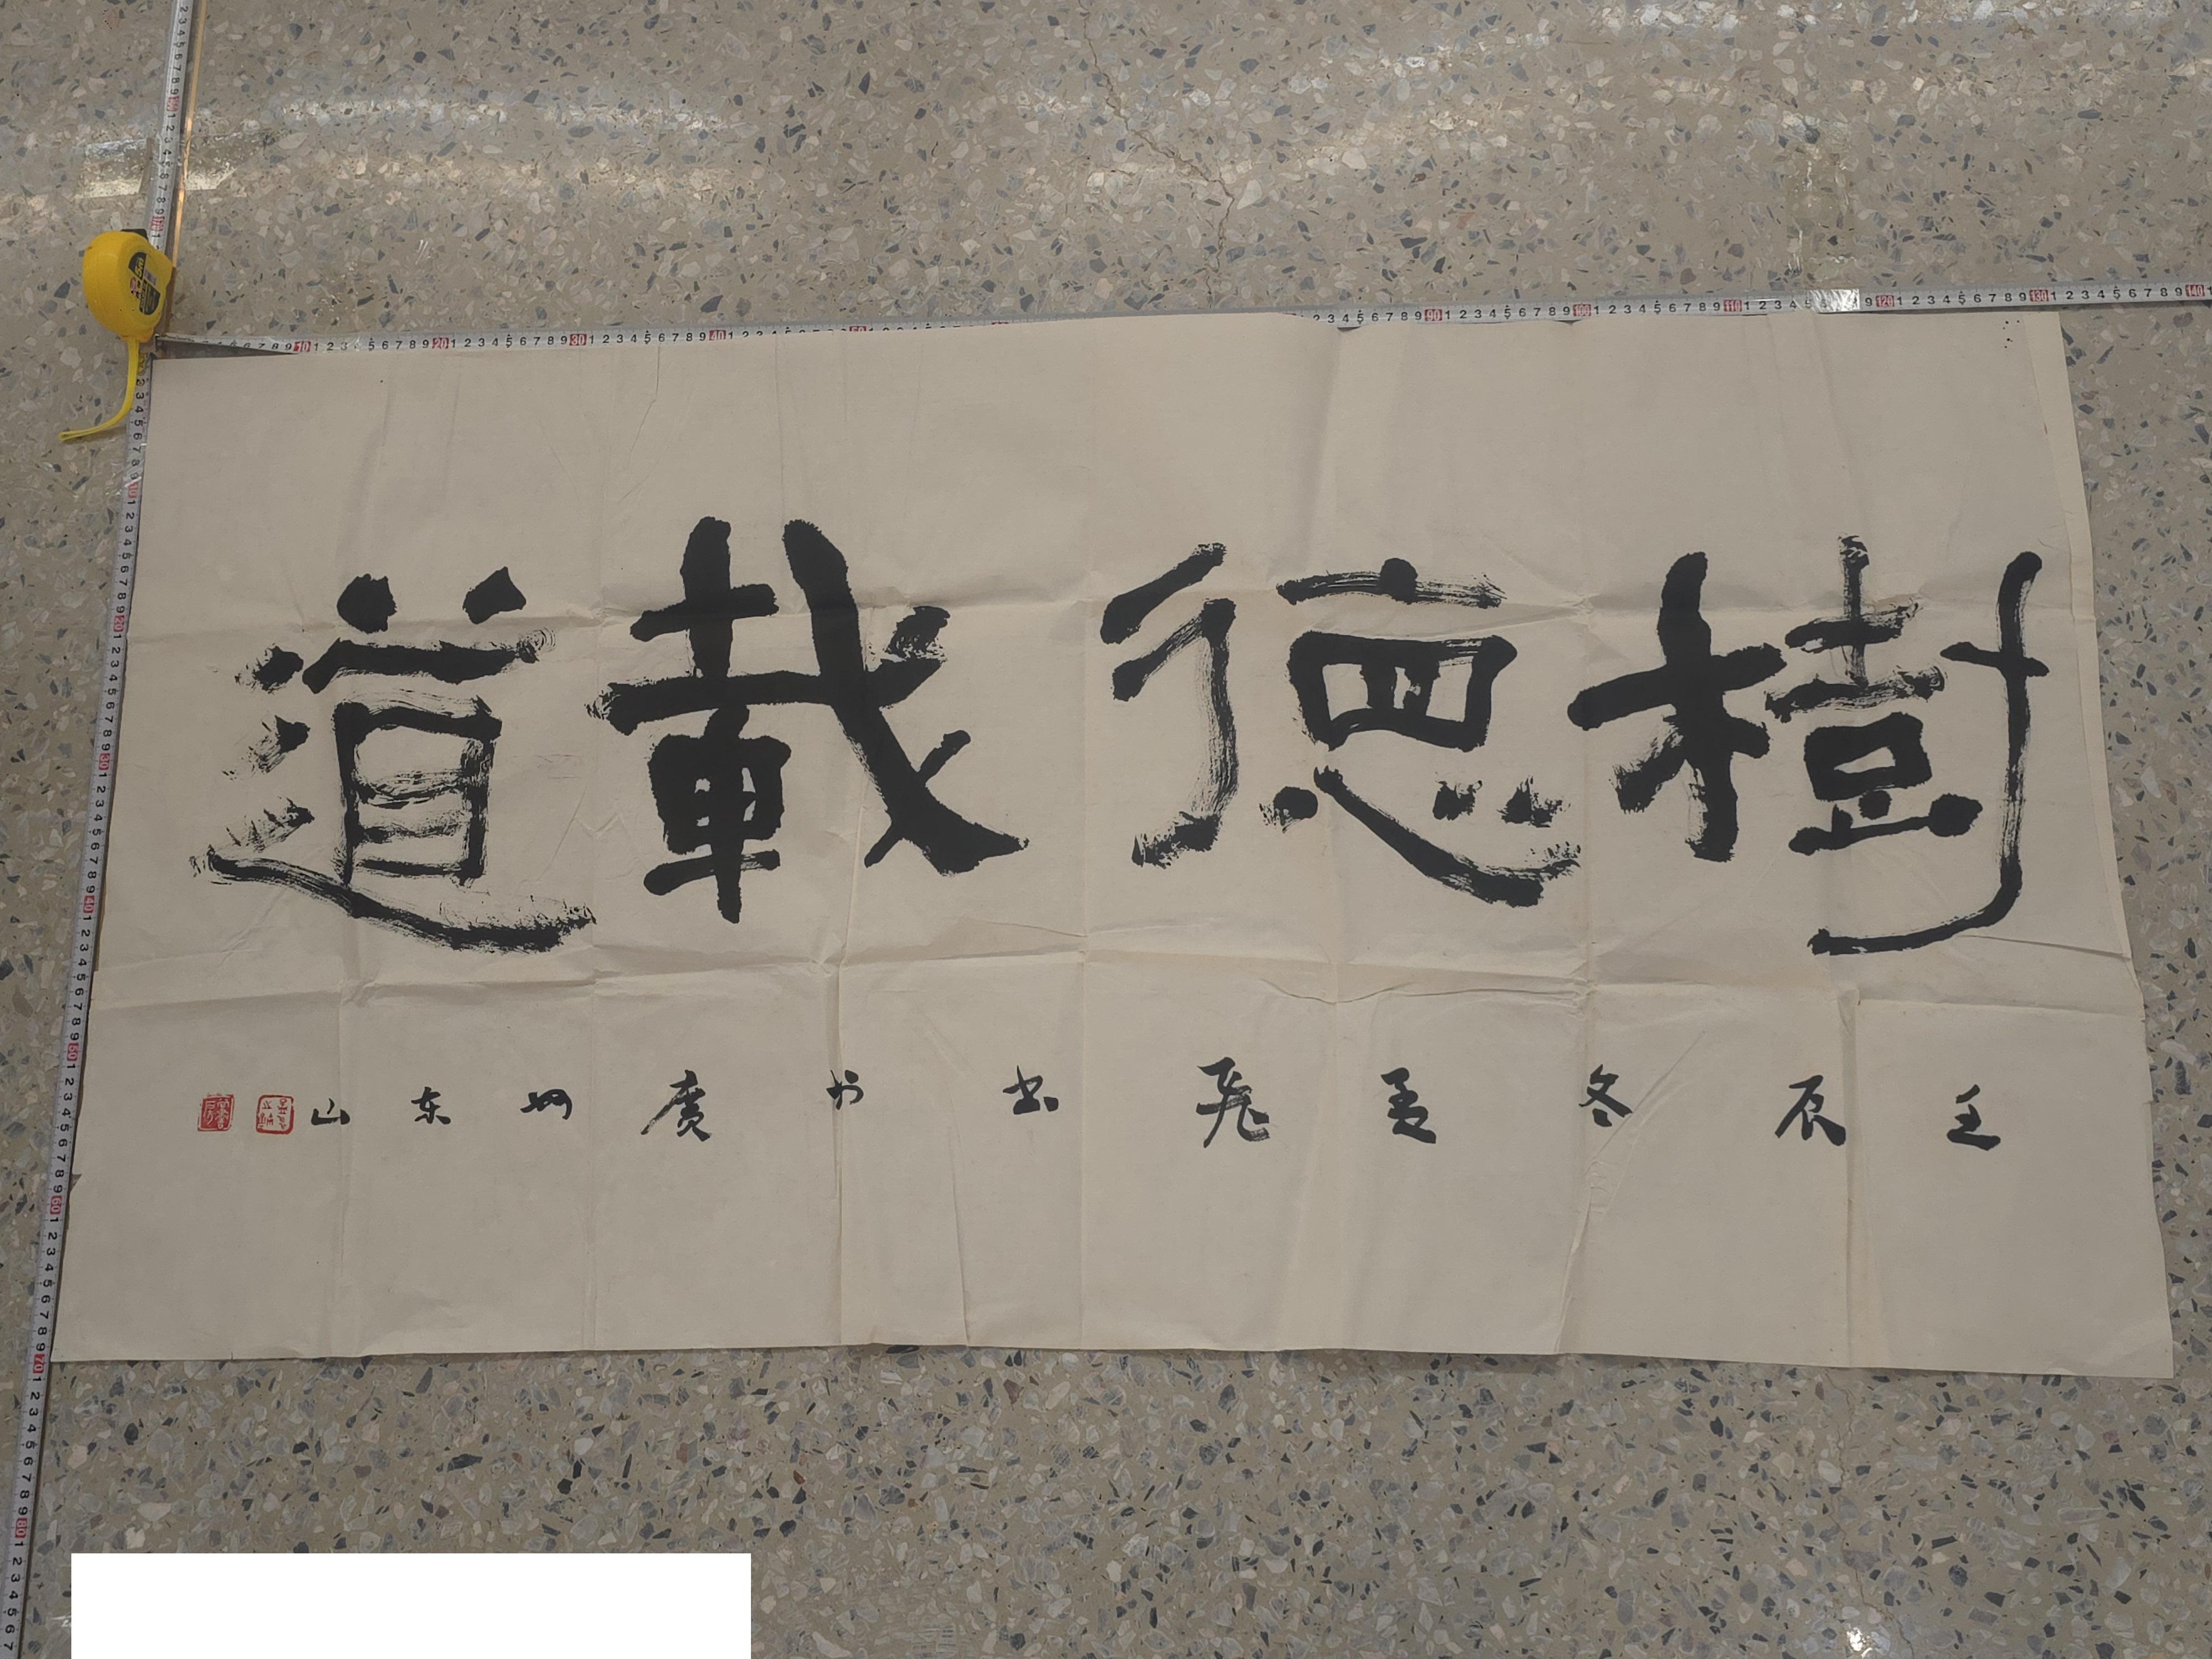 樹德載道
壬辰冬孟飛書於廣州東山